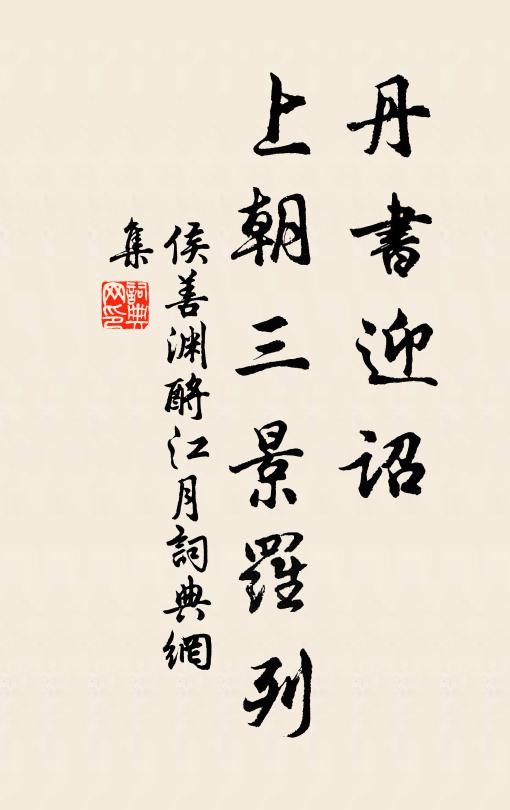 丹書迎詔
上朝三景羅列
侯善渊酹江月詞典網
集
詞典
网印